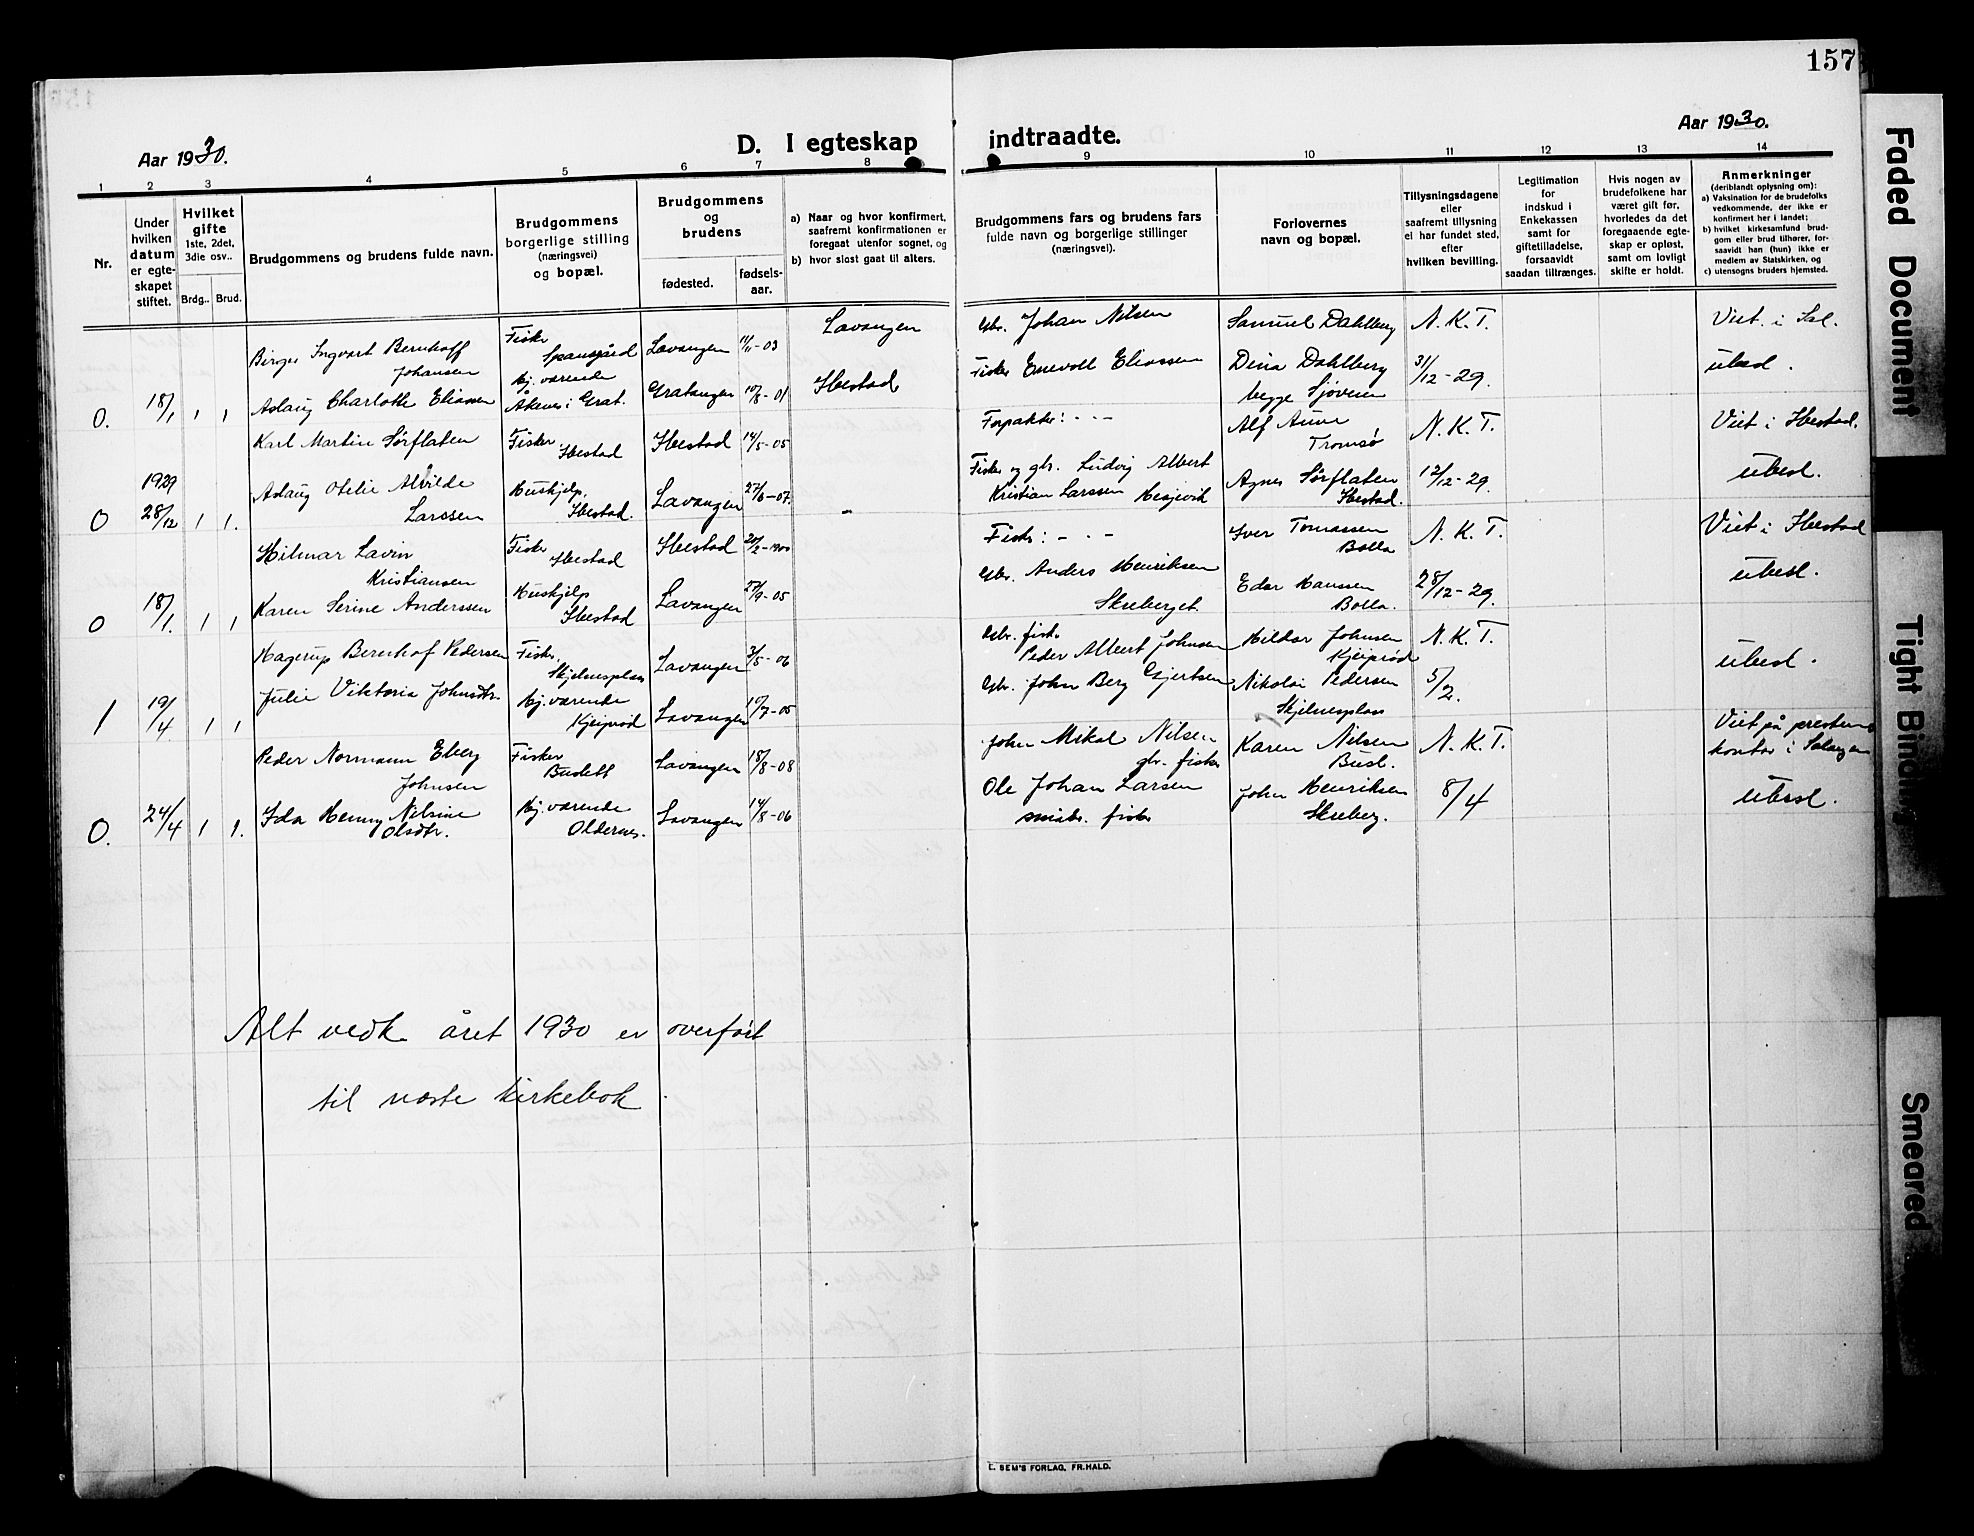 157
Aar 1930.
D. I egteskap indtraadte.
Aar 1930.
1 2 3 4 5 6 7 8 9 10 11 12 13 14
Nr.
Under hvilken datum er egteskapet stiftet.
Hvilket gifte 1ste, 2det, 3die osv..
Brdg.. Brud.
Brudgommens og brudens fulde navn.
Brudgommens borgerlige stilling (næringsvei) og bopæl.
Brudgommens og brudens
fødested.
fødselsaar.
a) Naar og hvor konfirmert, saafremt konfirmationen er foregaat utenfor sognet, og
b) hvor sidst gaat til alters.
Brudgommens fars og brudens fars fulde navn og borgerlige stillinger (næringsvei).
Forlovernes navn og bopæl.
Tillysningsdagene eller saafremt tillysning ei har fundet sted, efter hvilken bevilling.
Legitimation for indskud i Enkekassen samt for giftetilladelse, forsaavidt saadan tiltrænges.
Hvis nogen av brudefolkene har været gift før, hvorledes da det foregaaende egteskap er opløst, samt om lovligt skifte er holdt.
Anmerkninger
(deriblandt oplysning om):
a) Vaksination for de brudefolks vedkommende, der ikke er konfirmert her i landet;
b) hvilket kirkesamfund brudgom eller brud tilhører, forsaavidt han (hun) ikke er medlem av Statskirken, og
c) utensogns bruders hjemsted.
Birger Ingvart Bernhoff Johansen Fisker Spansgård Lavangen 11/11-03 Lavangen Gbr. Johan Nilsen Samuel Dahlberg N.K.T. Viet i Sal.
0. 18/1 1 1 Aslaug Charlotte Eliassen Hj. værende Åkenes i Grat. Gratangen 10/8-01 Ibestad Fisker Enevold Eliassen Dina Dahlberg begge Sjøvegan 31/12-29. ubesl.
Karl Martin Sørflaten Fisker, Ibestad Ibestad 14/5-05 Forpakter: - - - Alf Aune Tromsø N.K.T. Viet i Ibestad.
0 1929 28/12 1 1. Aslaug Otelie Alvilde Larssen Huskjelp, Ibestad. Lavangen 27/6-07. Fisker og gbr. Ludvig Albert Kristian Larssen Hesjevik Agnes Sørflaten Ibestad. 12/12-29. ubesl.
Hilmar Lavin Kristiansen Fisker Ibestad Ibestad 20/2-1900 Fisker: - - - Iver Tomassen Bolla N.K.T. Viet i Ibestad
0 18/1. 1 1 Karen Serine Anderssen Huskjelp Ibestad Lavangen 27/9-05 Gbr. Anders Henriksen Skreberget Edar Hanssen Bolla. 28/12-29. ubesl.
Hagerup Bernhof Pedersen Fisker, Skjelnesplass Lavangen 3/5-06 Gbr. fisker Peder Albert Johnsen Hildar Johnsen Kjeiprød N.K.T.
1 19/4 1 1 Julie Viktoria Johnsdtr. Hj. værende Kjeiprød Lavangen 10/7-05 Gbr. John Berg Gjertsen Nikolai Pedersen Skjelnesplass 5/2. ubesl.
Peder Normann Eberg Johnsen Fisker Budett Lavangen 18/8-08 John Mikal Nilsen gbr. fisker Karen Nilsen Busl. N.K.T. Viet på prestens kontor i Salangen
0. 24/4 1 1. Ida Henny Nilsine Olsdtr. Hj. værende Oldernes. Lavangen 14/8-06 Ole Johan Larsen småbr. fisker John Henriksen Skreberg. 8/4 ubesl.
Alt vedk. året 1930 er overført
til næste kirkebok.
L. SEM'S FORLAG, FR.HALD.
Faded Document
Tight Binding
Smeared